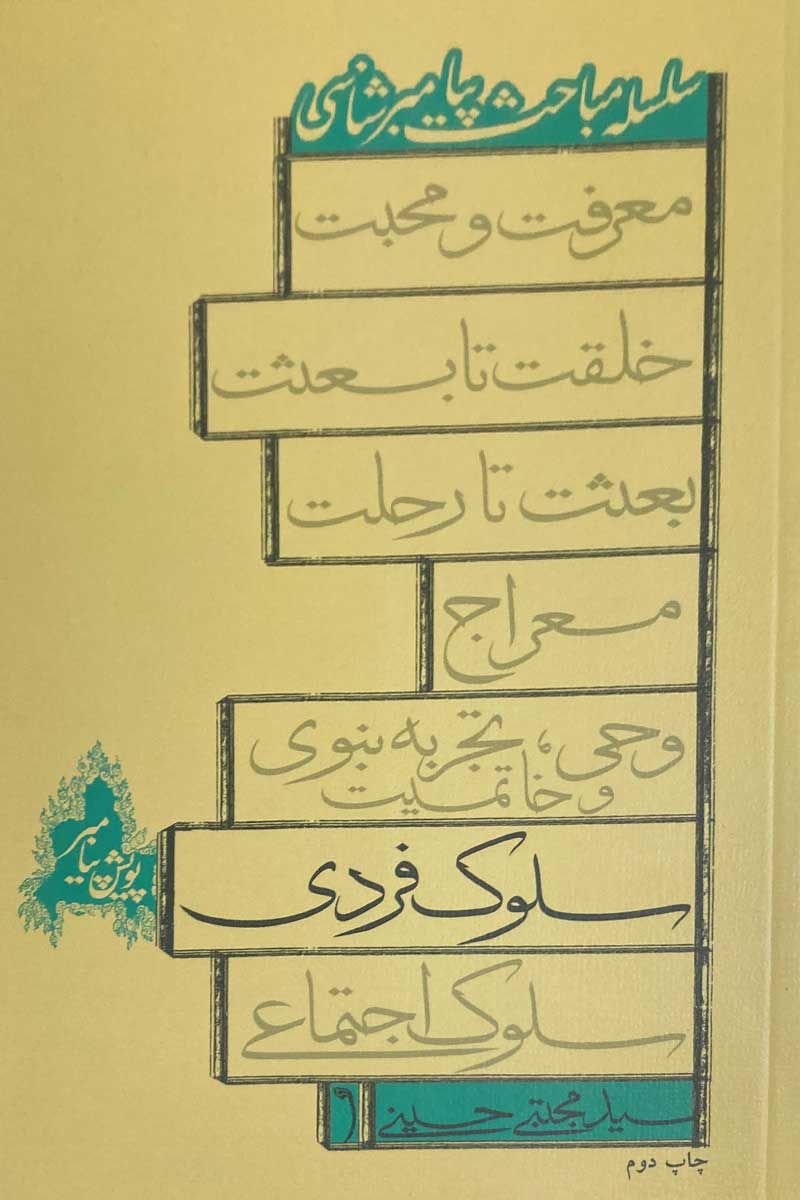 سلسله مباحث پیامبرشناسی
معرفت و محبت
خلقت تا بعثت
بعثت تا رحلت
معراج
وحی، تجربه نبوی
و خاتمیت
سلوک فردی
پویش پیامبر
سلوک اجتماعی
سید مجتبی حسینی
چاپ دوم